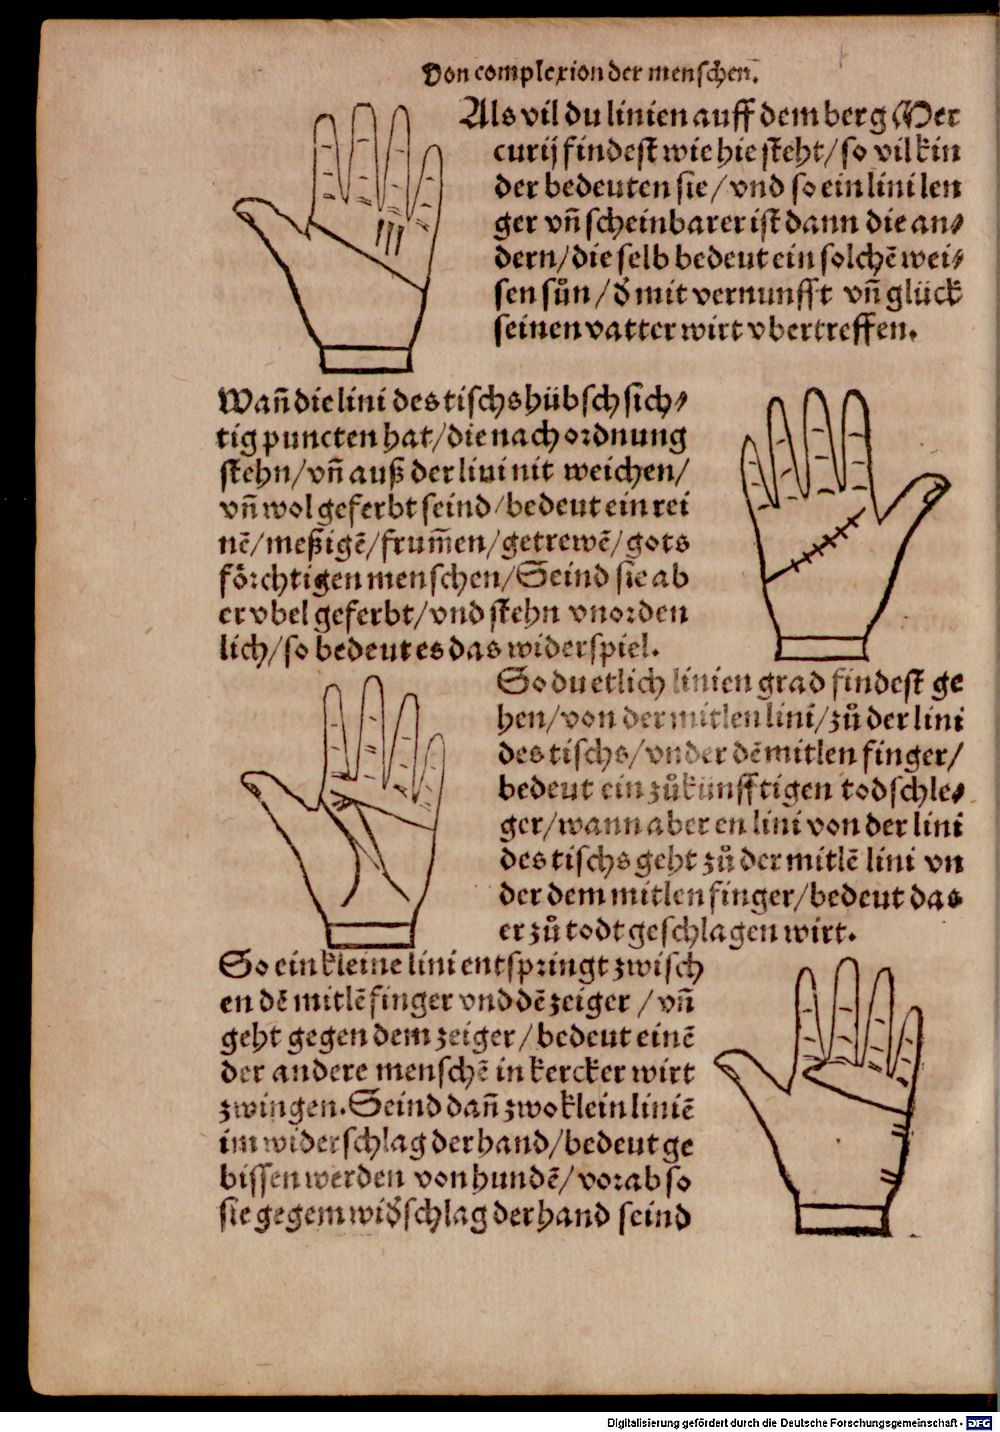 Von complexion der menschen.
Als vil du linien auff dem berg Mer
curij findest wie hie steht/ so vil kin
der bedeuten sie/ vnd so ein lini len
ger vñ scheinbarer ist dann die an⸗
dern/ die selb bedeut ein solchẽ wei⸗
sen sůn/ d̕ mit vernunfft vñ glück
seinen vatter wirt vbertreffen.
Wañ die lini des tischs hübsch sich⸗
tig puncten hat/ die nach ordnung
stehn/ vñ auß der liui nit weichen/
vñ wol geferbt seind/ bedeut ein rei
nẽ/ meßigẽ/ frum̃en/ getrewẽ/ gots
förchtigen menschen/ Seind sie ab
er vbel geferbt/ vnd stehn vnorden
lich/ so bedeut es das widerspiel.
So du etlich linien grad findest ge
hen/ von der mitlen lini/ zů der lini
des tischs/ vnder dẽ mitlen finger/
bedeut ein zůkünfftigen todschle⸗
ger/ wann aber en lini von der lini
des tischs geht zů der mitlẽ lini vn
der dem mitlen finger/ bedeut das
er zů todt geschlagen wirt.
So ein kleine lini entspringt zwisch
en dẽ mitlẽ finger vnd dẽ zeiger / vñ
geht gegen dem zeiger/ bedeut einẽ
der andere menschẽ in kercker wirt
zwingen. Seind dañ zwo klein liniẽ
im widerschlag der hand/ bedeut ge
bissen werden von hundẽ/ vorab so
sie gegem wid̕schlag der hand seind
Digitalisierung gefördert durch die Deutsche Forschungsgemeinschaft - DFG